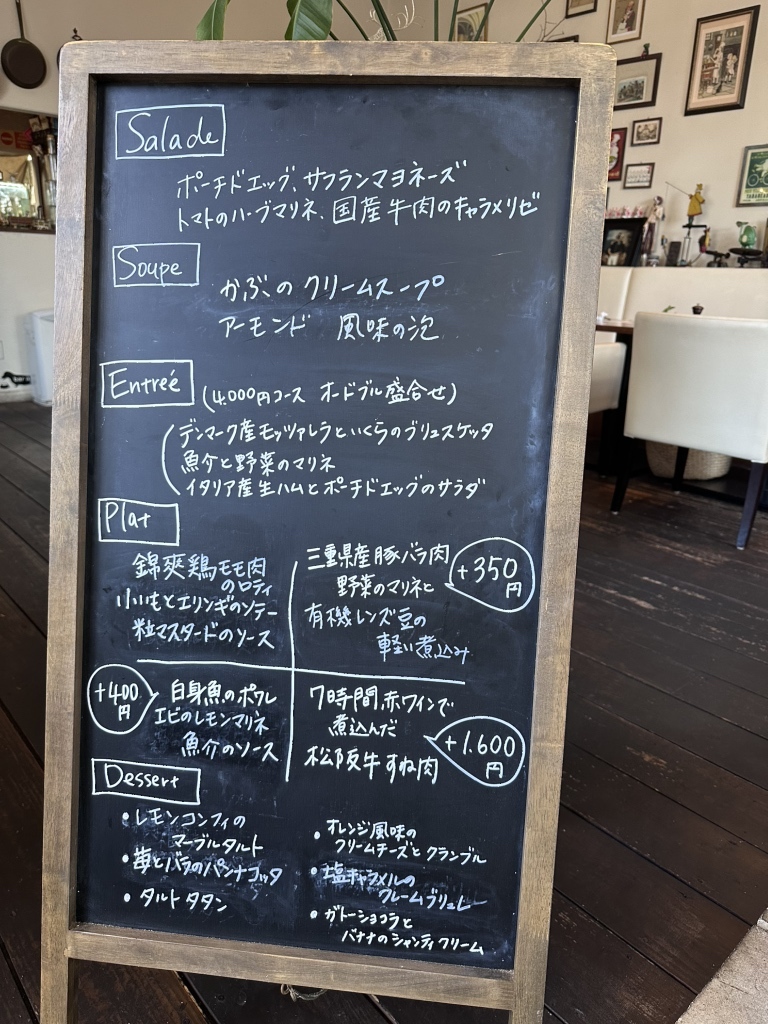 Salade
ポーチドエッグ、サフランマヨネーズ
トマトのハーブマリネ、国産牛肉のキャラメリゼ
Soupe
かぶのクリームスープ
アーモンド 風味の泡
Entreé
(4.000円コース オードブル盛合せ)
デンマーク産モッツァレラといくらのブリュスケッタ
魚介と野菜のマリネ
イタリア産生ハムとポーチドエッグのサラダ
Plat
錦爽鶏モモ肉
のロティ
小いもとエリンギのソテー
粒マスタードのソース
三重県産豚バラ肉
野菜のマリネと
有機レンズ豆の
軽い煮込み
+350
円
+400
円
白身魚のポワレ
エビのレモンマリネ
魚介のソース
7時間、赤ワインで
煮込んだ
松阪牛すね肉
+1.600
円
Dessert
・レモンコンフィの
マーブルタルト
・苺とバラのパンナコッタ
・タルトタタン
・オレンジ風味の
クリームチーズとクランブル
・塩キャラメルの
クレームブリュレ
・ガトーショコラと
バナナのシャンティクリーム